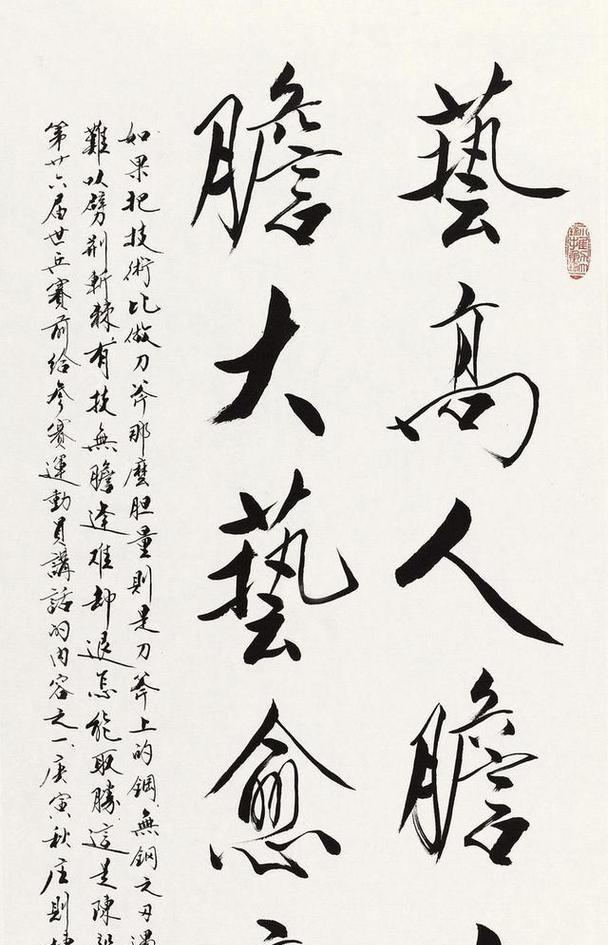 藝高人膽
膽大藝愈
如果把技術比做刀斧那麼胆量則是刀斧上的鋼無鋼之刃遇
難以劈荆斬棘有技無膽逢难却退怎能取勝這是陳
第廿六届世乒赛前给參赛運動員講話的内容之一庚寅秋庄則